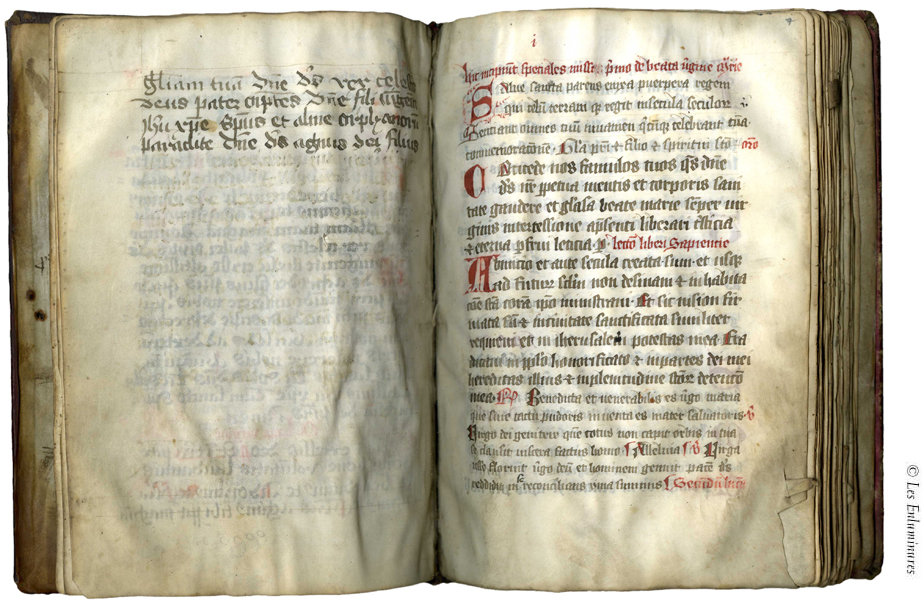 gliam tua dne ds rex celest
deus pater oiptes dne fili unigenit
ihu xpe spus et alme orphanoru
paradite dne ds agnus dei filius
i
Hic incipiunt speciales misse pmo de beata vgine
Salve sancta parens enixa puerpera regem
qui celu terram q regit in secula seculor
Sentiant omnes tuu iuvamen qcuq celebrant tua
comemoratione. Gla pri & filio & spiritui sco oro
Concede nos famulos tuos qs dne
ds nr ppetua mentis et corporis sani
tate gaudere et gliosa beate marie semper vir
ginis intercessione apsenti liberari tsticia
& eterna pfrui leticia p lectio libri Sapientie
Ab inicio et ante secula creata sum et usq
ad futur sclm non desinam & in habitac
one sca cora ipo ministravi. Et sic in sion fir
mata su & in civitate sanctificata similiter
requievi et in iherusalem potestas mea Et ra
dicavi in pplo honorificato & in partes dei mei
hereditas illius & in plenitudine scor detentio
mea. Benedicta et venerabilis es virgo maria
que sine tactu pudoris inventa es mater salvatoris V
Virgo dei genitrix que totus non capit orbis in tua
se clausit viscera factus homo Alleluia V Virga
iesse floruit virgo deu et hominem genuit pace ds
reddidit in se reconcilians yma summis Secundu lucam
© Les Enluminures